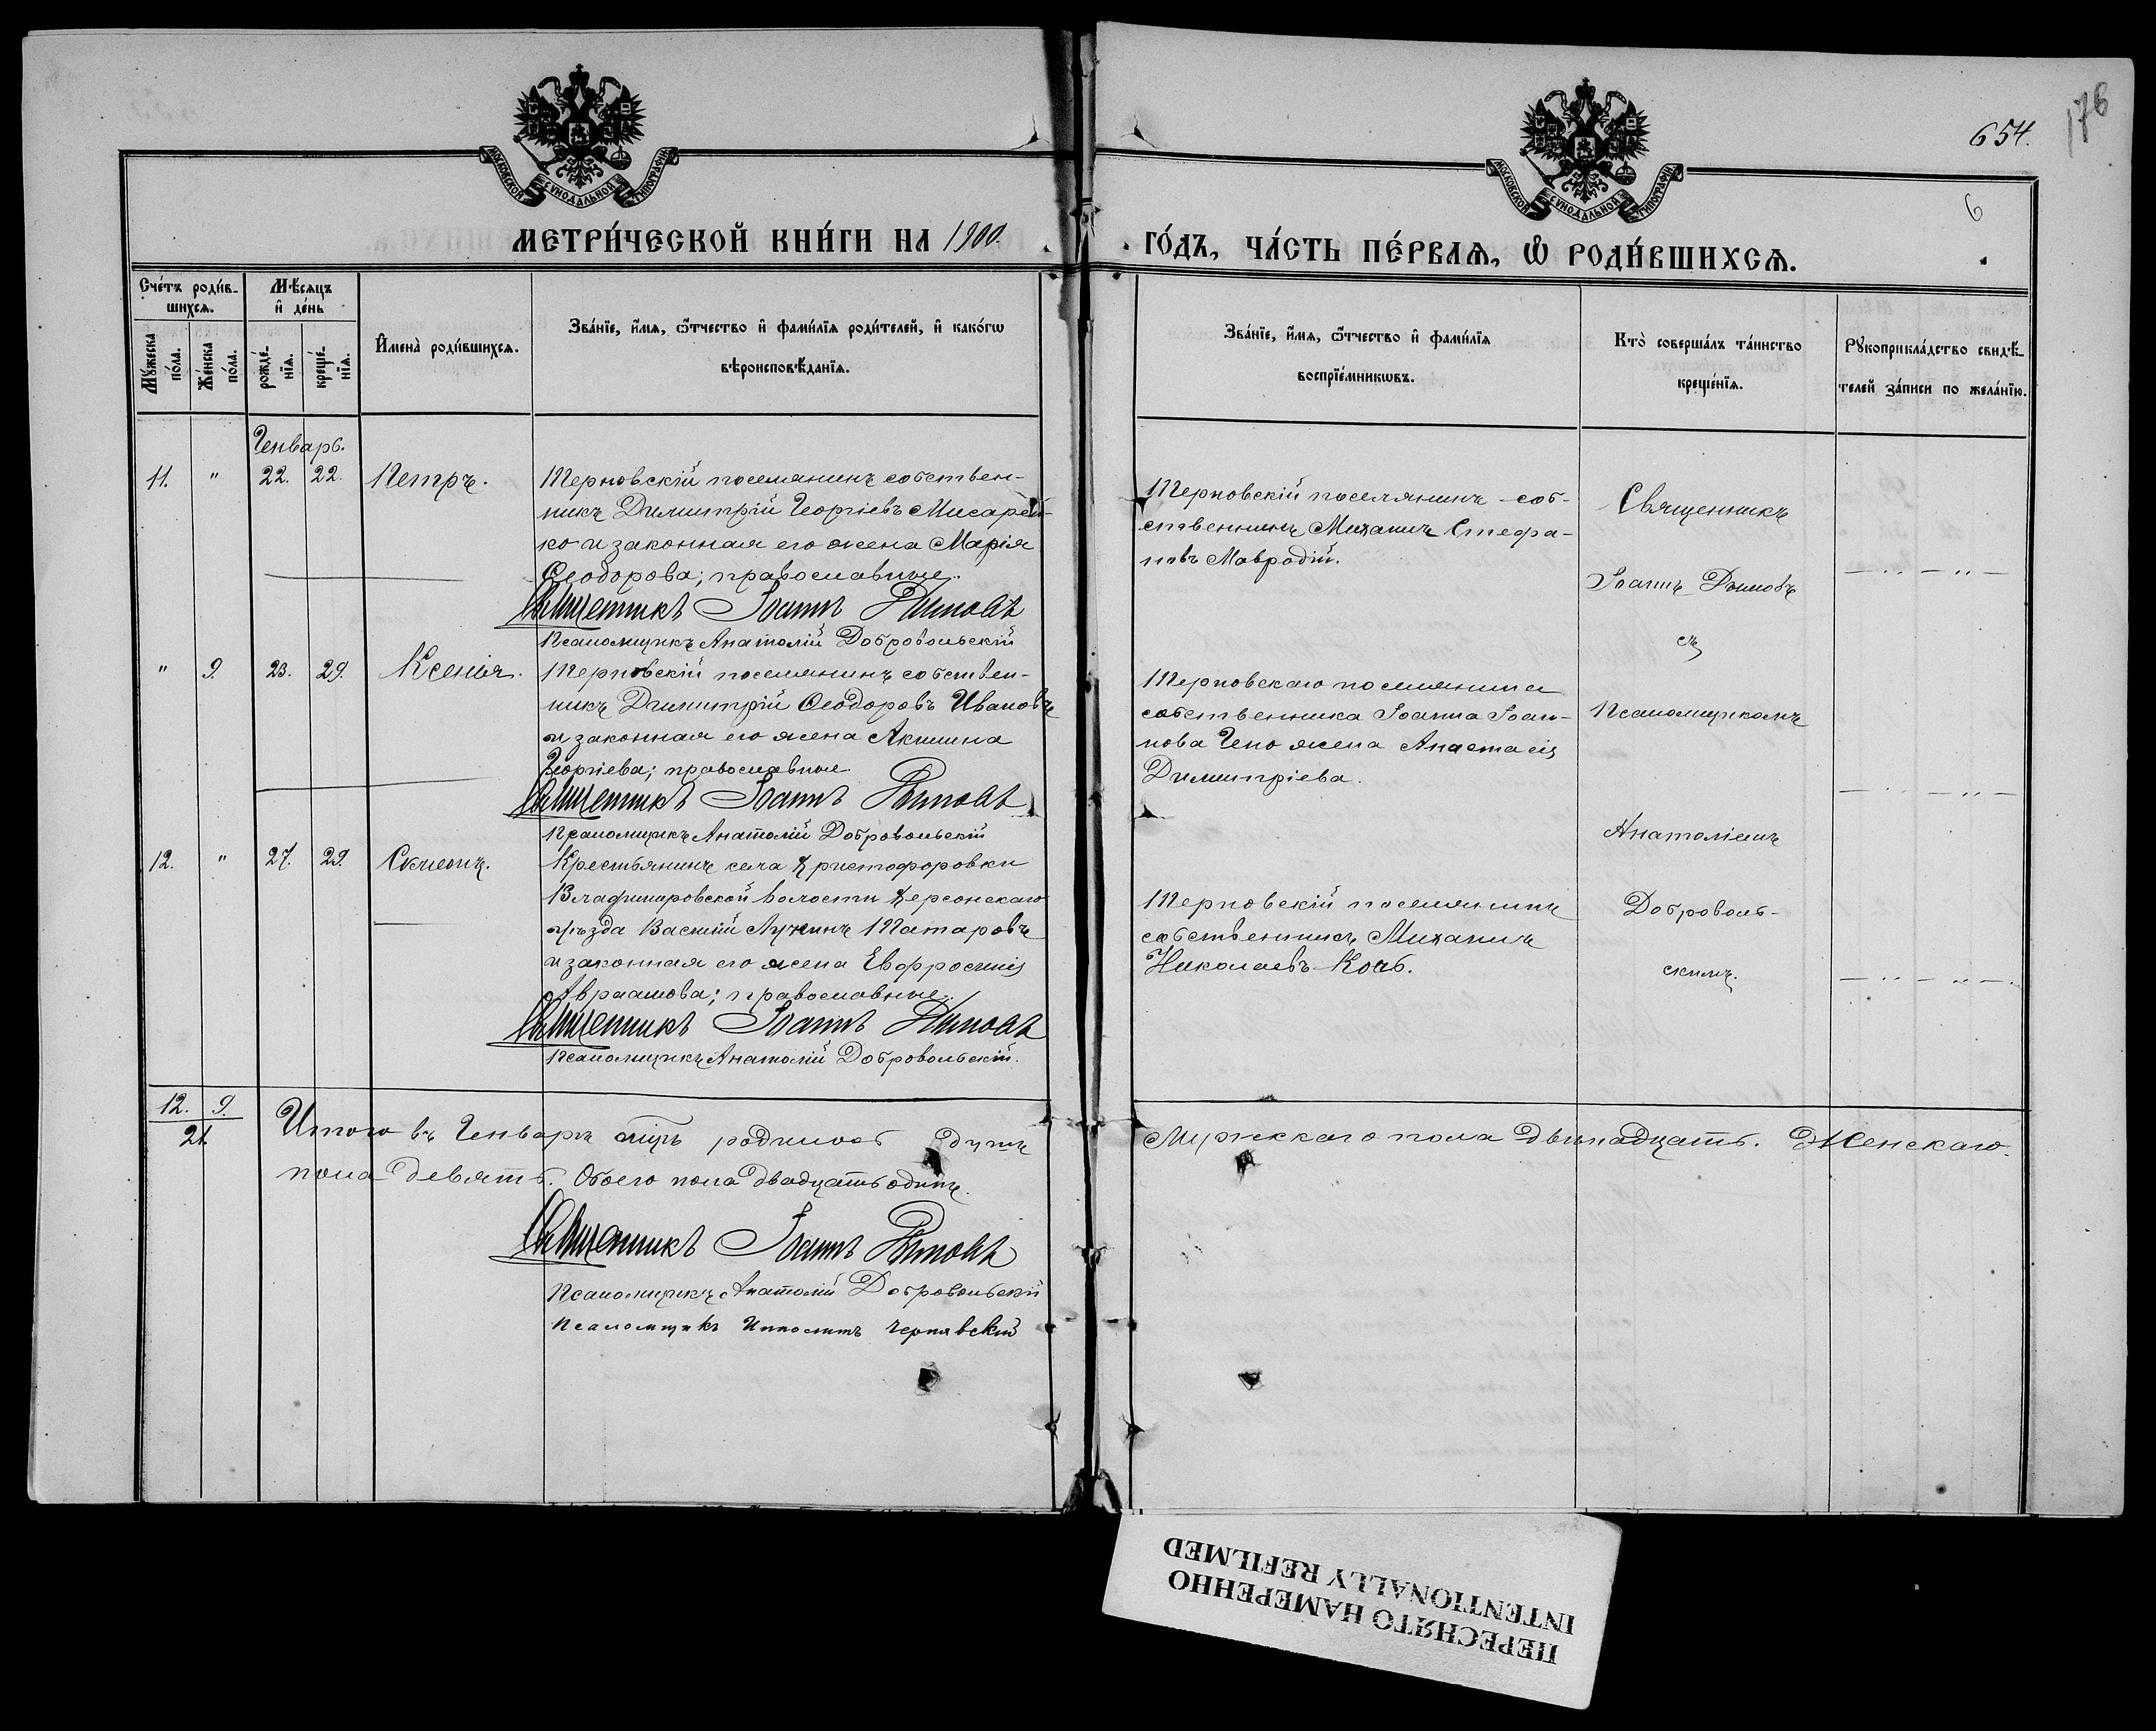 176
654.
6
МОСКОВСКОЙ СѴНОДАЛЬНОЙ ТИПОГРАФІИ
МОСКОВСКОЙ СѴНОДАЛЬНОЙ ТИПОГРАФІИ
МЕТРИ́ЧЕСКОЙ КНИ́ГИ НА 1900.
ГО́ДЪ, ЧА́СТЬ ПЕ́РВАѦ, Ѽ РОДИ́ВШИХСѦ.
Сче́тъ роди́в-
шихсѧ.
Мꙋжеска по́ла.
Же́нска по́ла.
Мѣ́сѧцъ
и҆ де́нь
рожде́-нїѧ.
креще́-нїѧ.
И҆мена̀ роди́вшихсѧ.
Зва́нїе, и҆́мѧ, ѻ҆́тчество и҆ фами́лїѧ роди́телей, и҆ како́гѡ
вѣроисповѣ́данїѧ.
Зва́нїе, и҆́мѧ, ѻ҆́тчество и҆ фами́лїѧ
воспрїе́мникѡвъ.
Кто̀ соверша́лъ та́инство
креще́нїѧ.
Рꙋкоприкла́дство свидѣ́-
телей за́писи по жела́нїю.
Генварь.
11. " 22. 22. Петръ.
Терновскій поселянинъ собствен-
никъ Димитрій Георгіевъ Писарен-
ко и законная его жена Марія
Ѳеодорова; православные.
Священникъ Іоаннъ Димовъ
Псаломщикъ Анатолій Добровольскій
Терновскій поселянинъ соб-
ственникъ Михаилъ Стефа-
новъ Мавродій.
Священникъ
Іоаннъ Димовъ
съ
Псаломщикомъ
Анатоліемъ
Доброволь-
скимъ.
" 9. 23. 29. Ксенія.
Терновскій поселянинъ собствен-
никъ Димитрій Ѳеодоровъ Ивановъ
и законная его жена Акилина
Георгіева; православные.
Священникъ Іоаннъ Димовъ
Псаломщикъ Анатолій Добровольскій
Терновскаго поселянина
собственника Іоанна Іоан-
нова жена Анастасія
Димитріева.
12. " 27. 29. Симеонъ.
Крестьянинъ села Христофоровки
Владимировской волости Херсонскаго
уѣзда Василій Лукинъ Татаровъ
и законная его жена Евфросинія
Авраамова; православные.
Священникъ Іоаннъ Димовъ
Псаломщикъ Анатолій Добровольскій.
Терновскій поселянинъ
собственникъ Михаилъ
Николаевъ
12. 9.
21.
Итого въ Генварѣ мцѣ родилось душъ
Мужескаго пола двѣнадцать. Женскаго
пола девять. Обоего пола двадцать одинъ.
Священникъ Іоаннъ Димовъ
Псаломщикъ Анатолій Добровольскій
Псаломщикъ Ипполитъ Чернявскій
ПЕРЕСНЯТО НАМЕРЕННО
INTENTIONALLY REFILMED